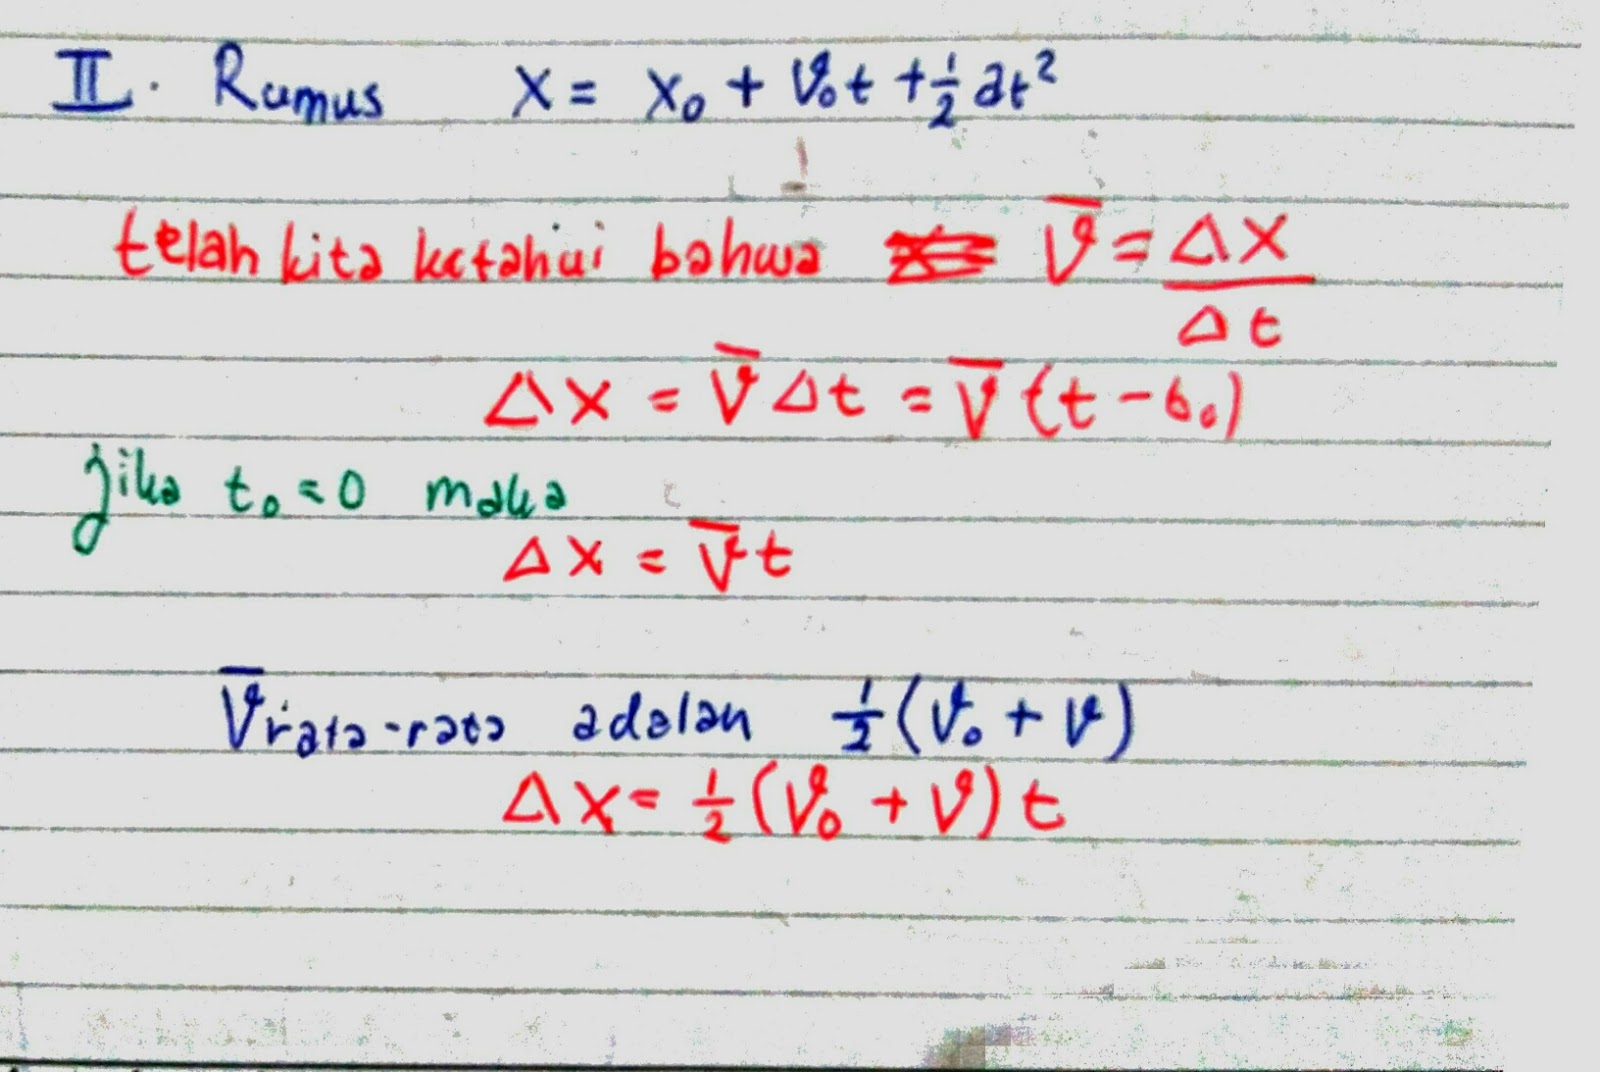 II. Rumus x = x₀ + v₀t + ½at²
telah kita ketahui bahwa v̅ = Δx/Δt
Δx = v̅ Δt = v̅ (t - t₀)
jika t₀ = 0 maka
Δx = v̅t
v̅rata-rata adalah ½(v₀ + v)
Δx = ½(v₀ + v)t